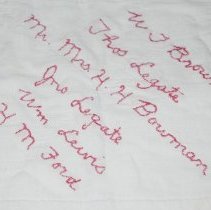 W J Brown
Thos Legate
Mr. Mrs H. H Bowman
Jno Legate
Wm Lewis
H M Ford